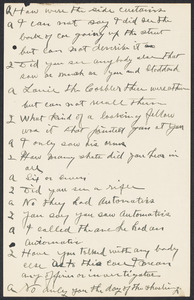 Q How were the side curtains
A I can not say I did see the
back of car going up the street
but can not describe it
Q Did you see any body else that
saw as much as you did
A Louie the Cobbler there were others
but can not recall them
Q What kind of a looking fellow
was it that pointed gun at you
A I only saw his arms
Q How many shots did you hear in
all
A Six or seven
Q Did you see a rifle
A No they had Automatics
Q You say you saw Automatics
A I called the one he had an
Automatic
Q Have you talked with any body
else as to this case I mean
any officer or investigator
A No only you the day of the shooting